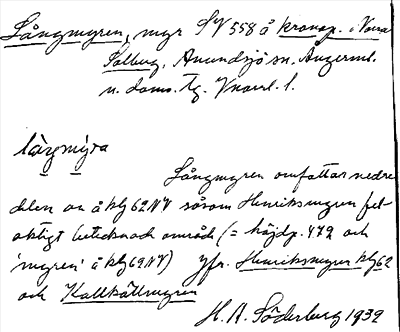 Långmyren, myr SV 558 å kronop. i Norra
Solberg, Anundsjö sn. Ångerml.
n. doms. tg. Vnorrl. l.
låŋmýra
Långmyren omfattar nedre
delen av å kbl 62 NV såsom Henriksmyren fel-
aktigt betecknade område (= höjdp. 472 och
'myren' å kbl 69 NV) Jfr. Henriksmyren kbl 62
och Kallkällmyren
H. A. Söderberg 1939